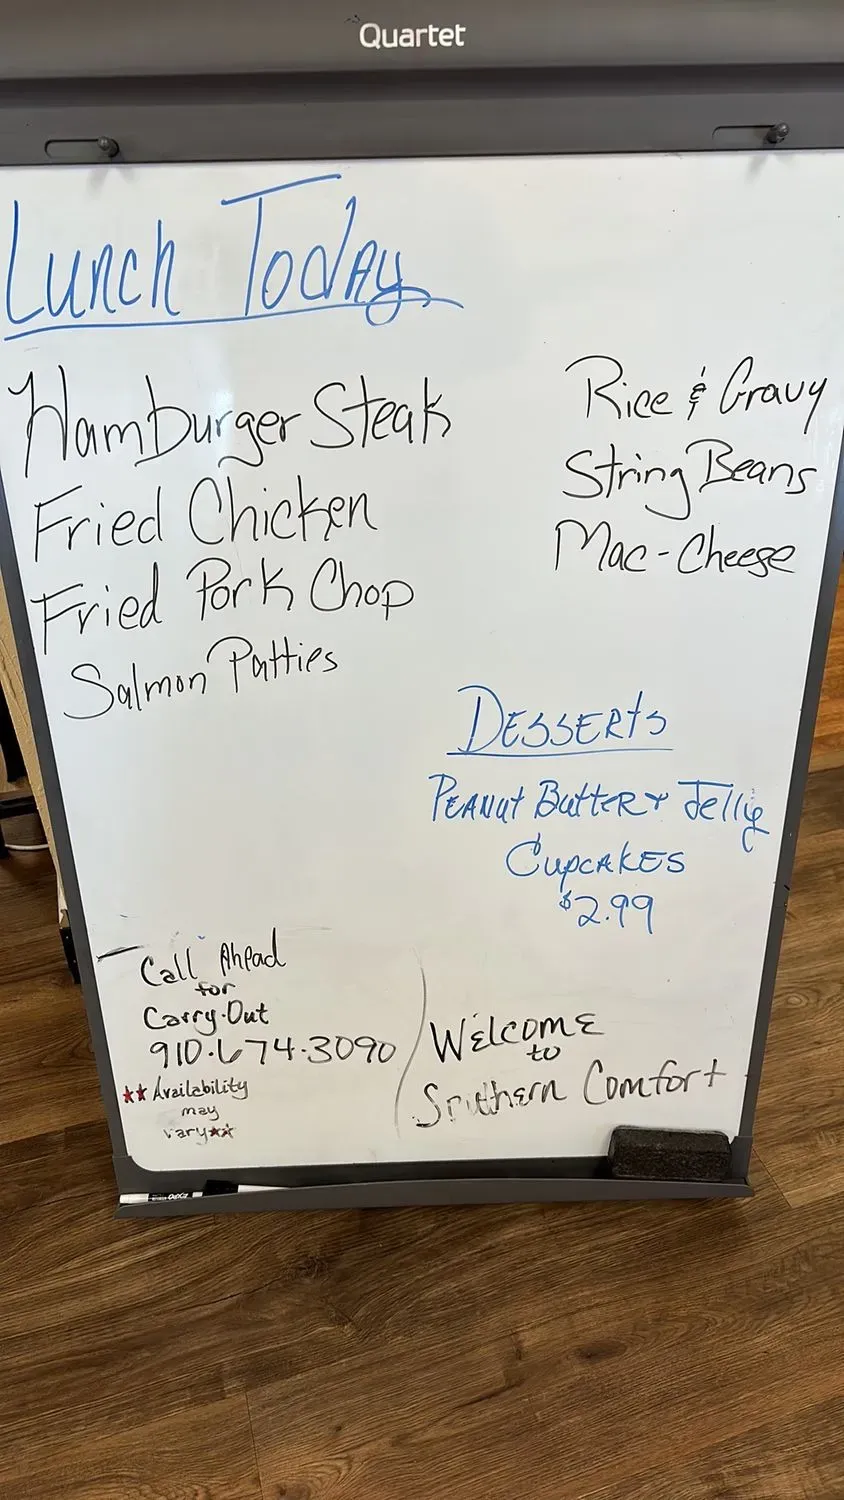 Quartet
Lunch Today
Hamburger Steak
Fried Chicken
Fried Pork Chop
Salmon Patties
Rice & Gravy
String Beans
Mac-Cheese
DESSERTS
PEANUT BUTTER & Jelly
CUPCAKES
$2.99
Call Ahead
for
Carry-Out
910.674.3090
** Availability
may
vary**
WELCOME
to
Southern Comfort
EXPO